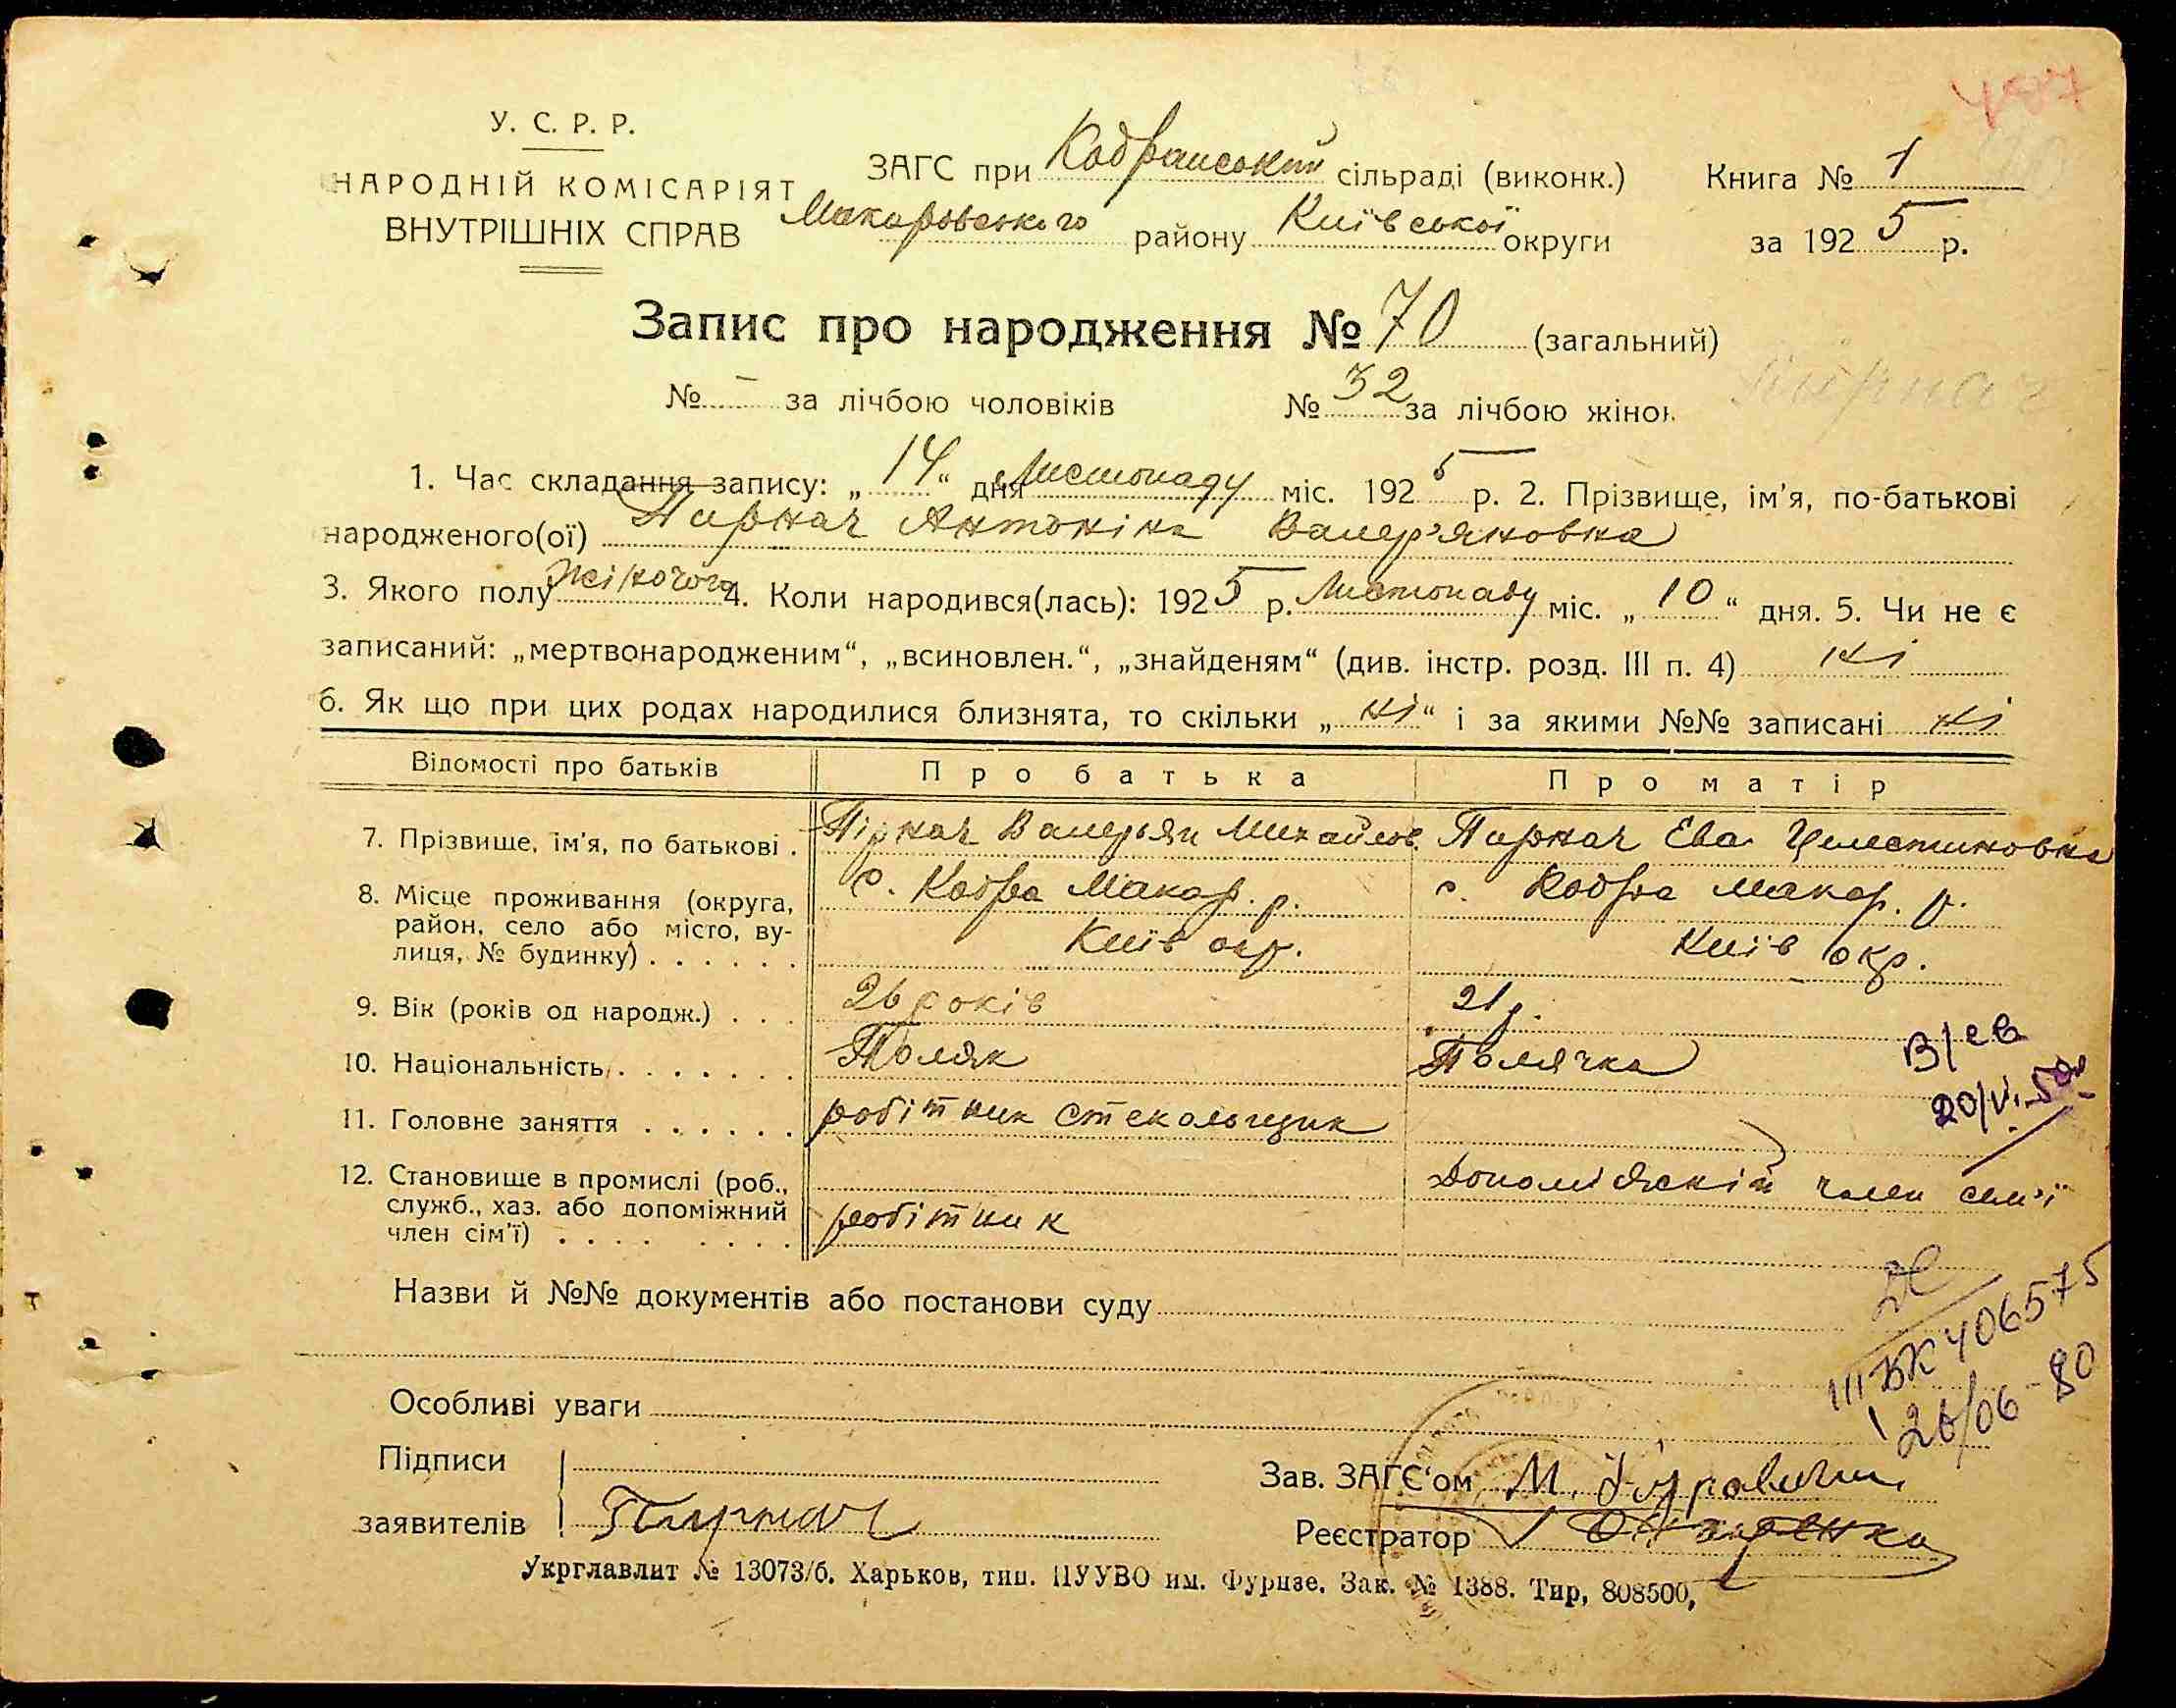 487
У. С. Р. Р.
НАРОДНІЙ КОМІСАРІЯТ
ВНУТРІШНІХ СПРАВ
ЗАГС при Кодранський сільраді (виконк.)
Макаровського району Київської округи
Книга № 1
за 1925 р.
Запис про народження № 70 (загальний)
№ - за лічбою чоловіків № 32 за лічбою жінок
Пірнач
1. Час складання запису: „14“ дня Листопаду міс. 1925 р. 2. Прізвище, ім'я, по-батькові
народженого(ої) Пирнач Антоніна Валер'яновна
3. Якого полу жіночого 4. Коли народився(лась): 1925 р. Листопаду міс. „10“ дня. 5. Чи не є
записаний: „мертвонародженим“, „всиновлен.“, „знайденям“ (див. інстр. розд. III п. 4) ні
6. Як що при цих родах народилися близнята, то скільки „ні“ і за якими №№ записані ні
Відомості про батьків Про батька Про матір
7. Прізвище, ім'я, по батькові . Пірнач Валерьян Михайлов. Пирнач Ева Целестиновна
8. Місце проживання (округа, с. Кодра Макар. р. с. Кодра Макар. р.
район, село або місто, ву- Київ окр. Київ окр.
лиця, № будинку) . . . . . .
9. Вік (років од народж.) . . . 26 років 21 р.
10. Національність . . . . . . . Поляк Полячка
11. Головне заняття . . . . . . робітник стекольщик
12. Становище в промислі (роб., Допоміжний член сем'ї
служб., хаз. або допоміжний робітник
член сім'ї) . . . . . . . .
Назви й №№ документів або постанови суду
III БК 406575
26/06-80
Особливі уваги
Підписи
заявителів Пирнач
Зав. ЗАГС'ом М.
Реєстратор
Укрглавлит № 13073/б. Харьков, тип. ПУУВО им. Фрунзе. Зак. № 1388. Тир, 808500,